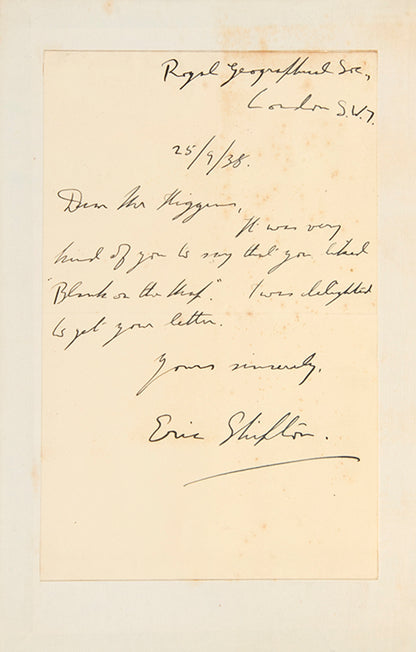 Royal Geographical Soc,
London S.W.7.
25/9/38.
Dear Mr Higgins,
It was very
kind of you to say that you liked
"Blank on the Map". I was delighted
to get your letter.
Yours sincerely,
Eric Shipton.